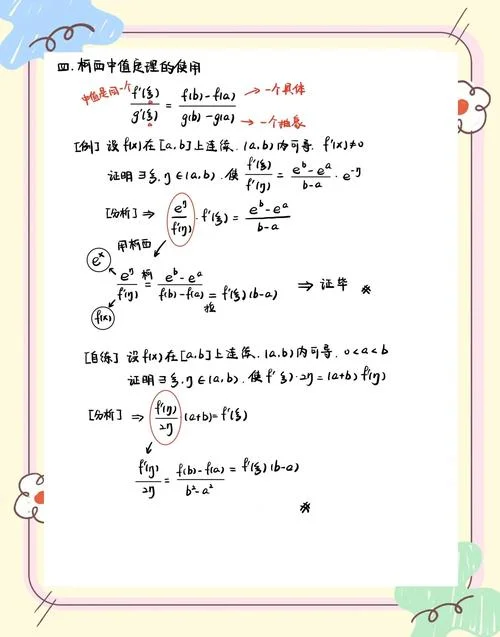 四. 柯西中值定理的使用
中值是同一个 f'(ξ)/g'(ξ) = (f(b)-f(a))/(g(b)-g(a)) → 一个具体 → 一个抽象
[例] 设 f(x) 在 [a,b] 上连续. (a,b) 内可导. f'(x)≠0
证明 ∃ ξ,η ∈ (a,b). 使 f'(ξ)/f'(η) = (e^b-e^a)/(b-a) · e^-η
[分析] ⇒ e^η/f'(η) · f'(ξ) = (e^b-e^a)/(b-a)
用柯西
e^x
e^η/f'(η) 柯= (e^b-e^a)/(f(b)-f(a)) 拉= f'(ξ)(b-a) ⇒ 证毕 ※
f(x)
[自练] 设 f(x) 在 [a,b] 上连续. (a,b) 内可导. 0<a<b
证明 ∃ ξ,η ∈ (a,b). 使 f'(ξ)·2η = (a+b) f'(η)
[分析] ⇒ f'(η)/2η (a+b) = f'(ξ)
f'(η)/2η = (f(b)-f(a))/(b²-a²) = f'(ξ)(b-a)
※